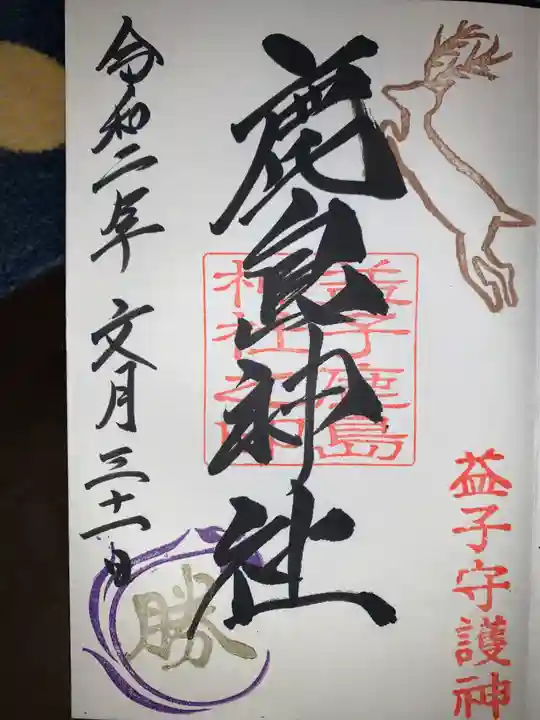 益子守護神
鹿島神社
益子鹿島
神社之印
令和二年 文月 三十一日
勝